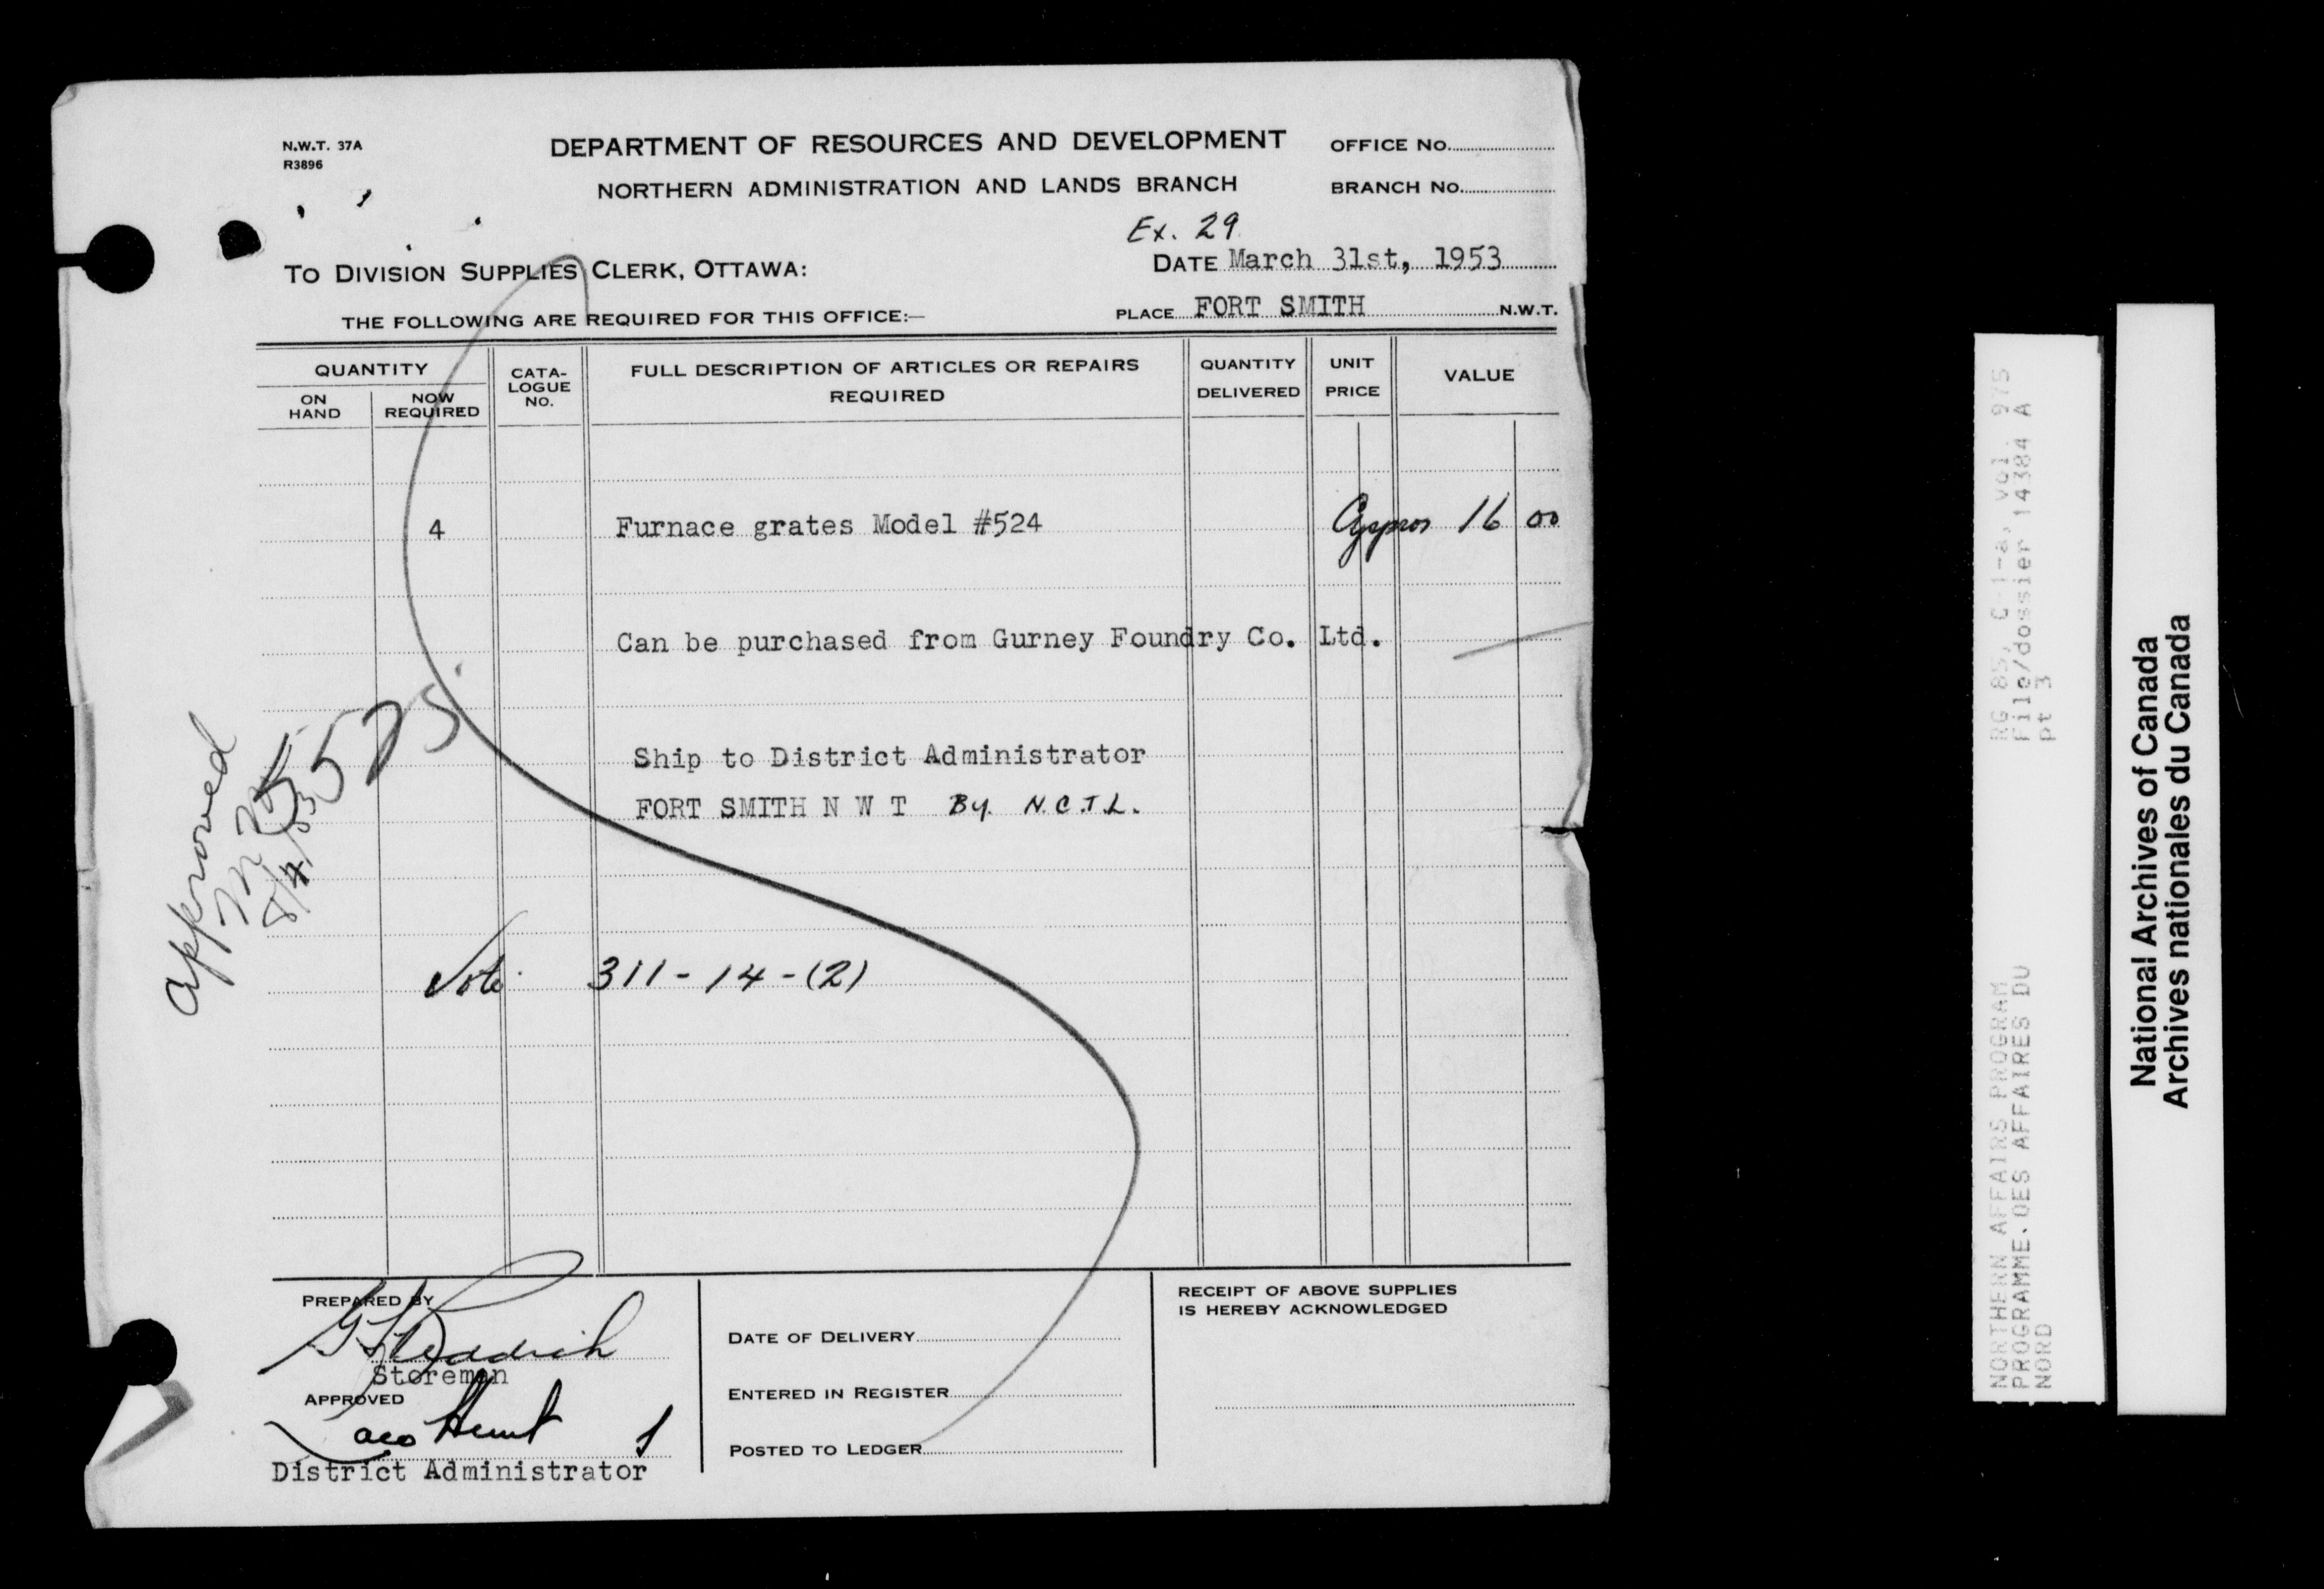 N.W.T. 37A
R3896
DEPARTMENT OF RESOURCES AND DEVELOPMENT
NORTHERN ADMINISTRATION AND LANDS BRANCH
OFFICE No.
BRANCH No.
Ex. 29
TO DIVISION SUPPLIES CLERK, OTTAWA:
DATE March 31st, 1953
THE FOLLOWING ARE REQUIRED FOR THIS OFFICE:—
PLACE FORT SMITH N.W.T.
QUANTITY
ON HAND
NOW REQUIRED
CATA-
LOGUE
NO.
FULL DESCRIPTION OF ARTICLES OR REPAIRS
REQUIRED
QUANTITY
DELIVERED
UNIT
PRICE
VALUE
4 Furnace grates Model #524 Approx 16 00
Can be purchased from Gurney Foundry Co. Ltd.
Ship to District Administrator
FORT SMITH N W T By. N.C.T.L.
Approved
8/4/53
5575
Vote 311-14-(2)
PREPARED BY
Storeman
APPROVED
District Administrator
DATE OF DELIVERY
ENTERED IN REGISTER
POSTED TO LEDGER
RECEIPT OF ABOVE SUPPLIES
IS HEREBY ACKNOWLEDGED
NORTHERN AFFAIRS PROGRAM
PROGRAMME.DES AFFAIRES DU
NORD
RG 85, C-1-a, vol. 975
File/dossier 14384 A
pt 3
National Archives of Canada
Archives nationales du Canada